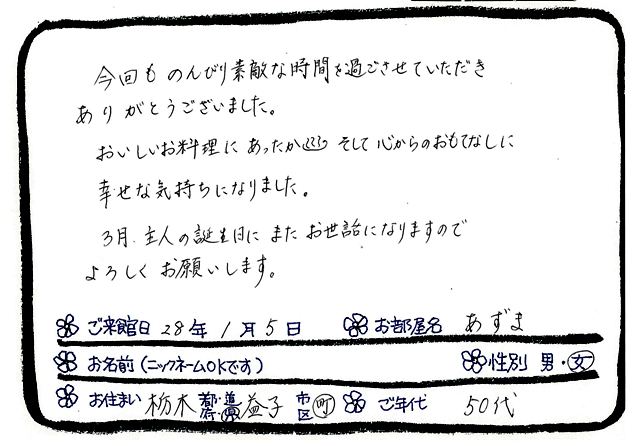 今回も のんびり素敵な時間を過ごさせていただき
ありがとうございました。
おいしいお料理に あったか♨ そして心からのおもてなしに
幸せな気持ちになりました。
3月、主人の誕生日に また お世話になりますので
よろしく お願いします。
ご来館日 28年 1月 5日 お部屋名 あずま
お名前(ニックネームOKです) 性別 男・女
お住まい 栃木 都・道・府・県 益子 市・区・町 ご年代 50代